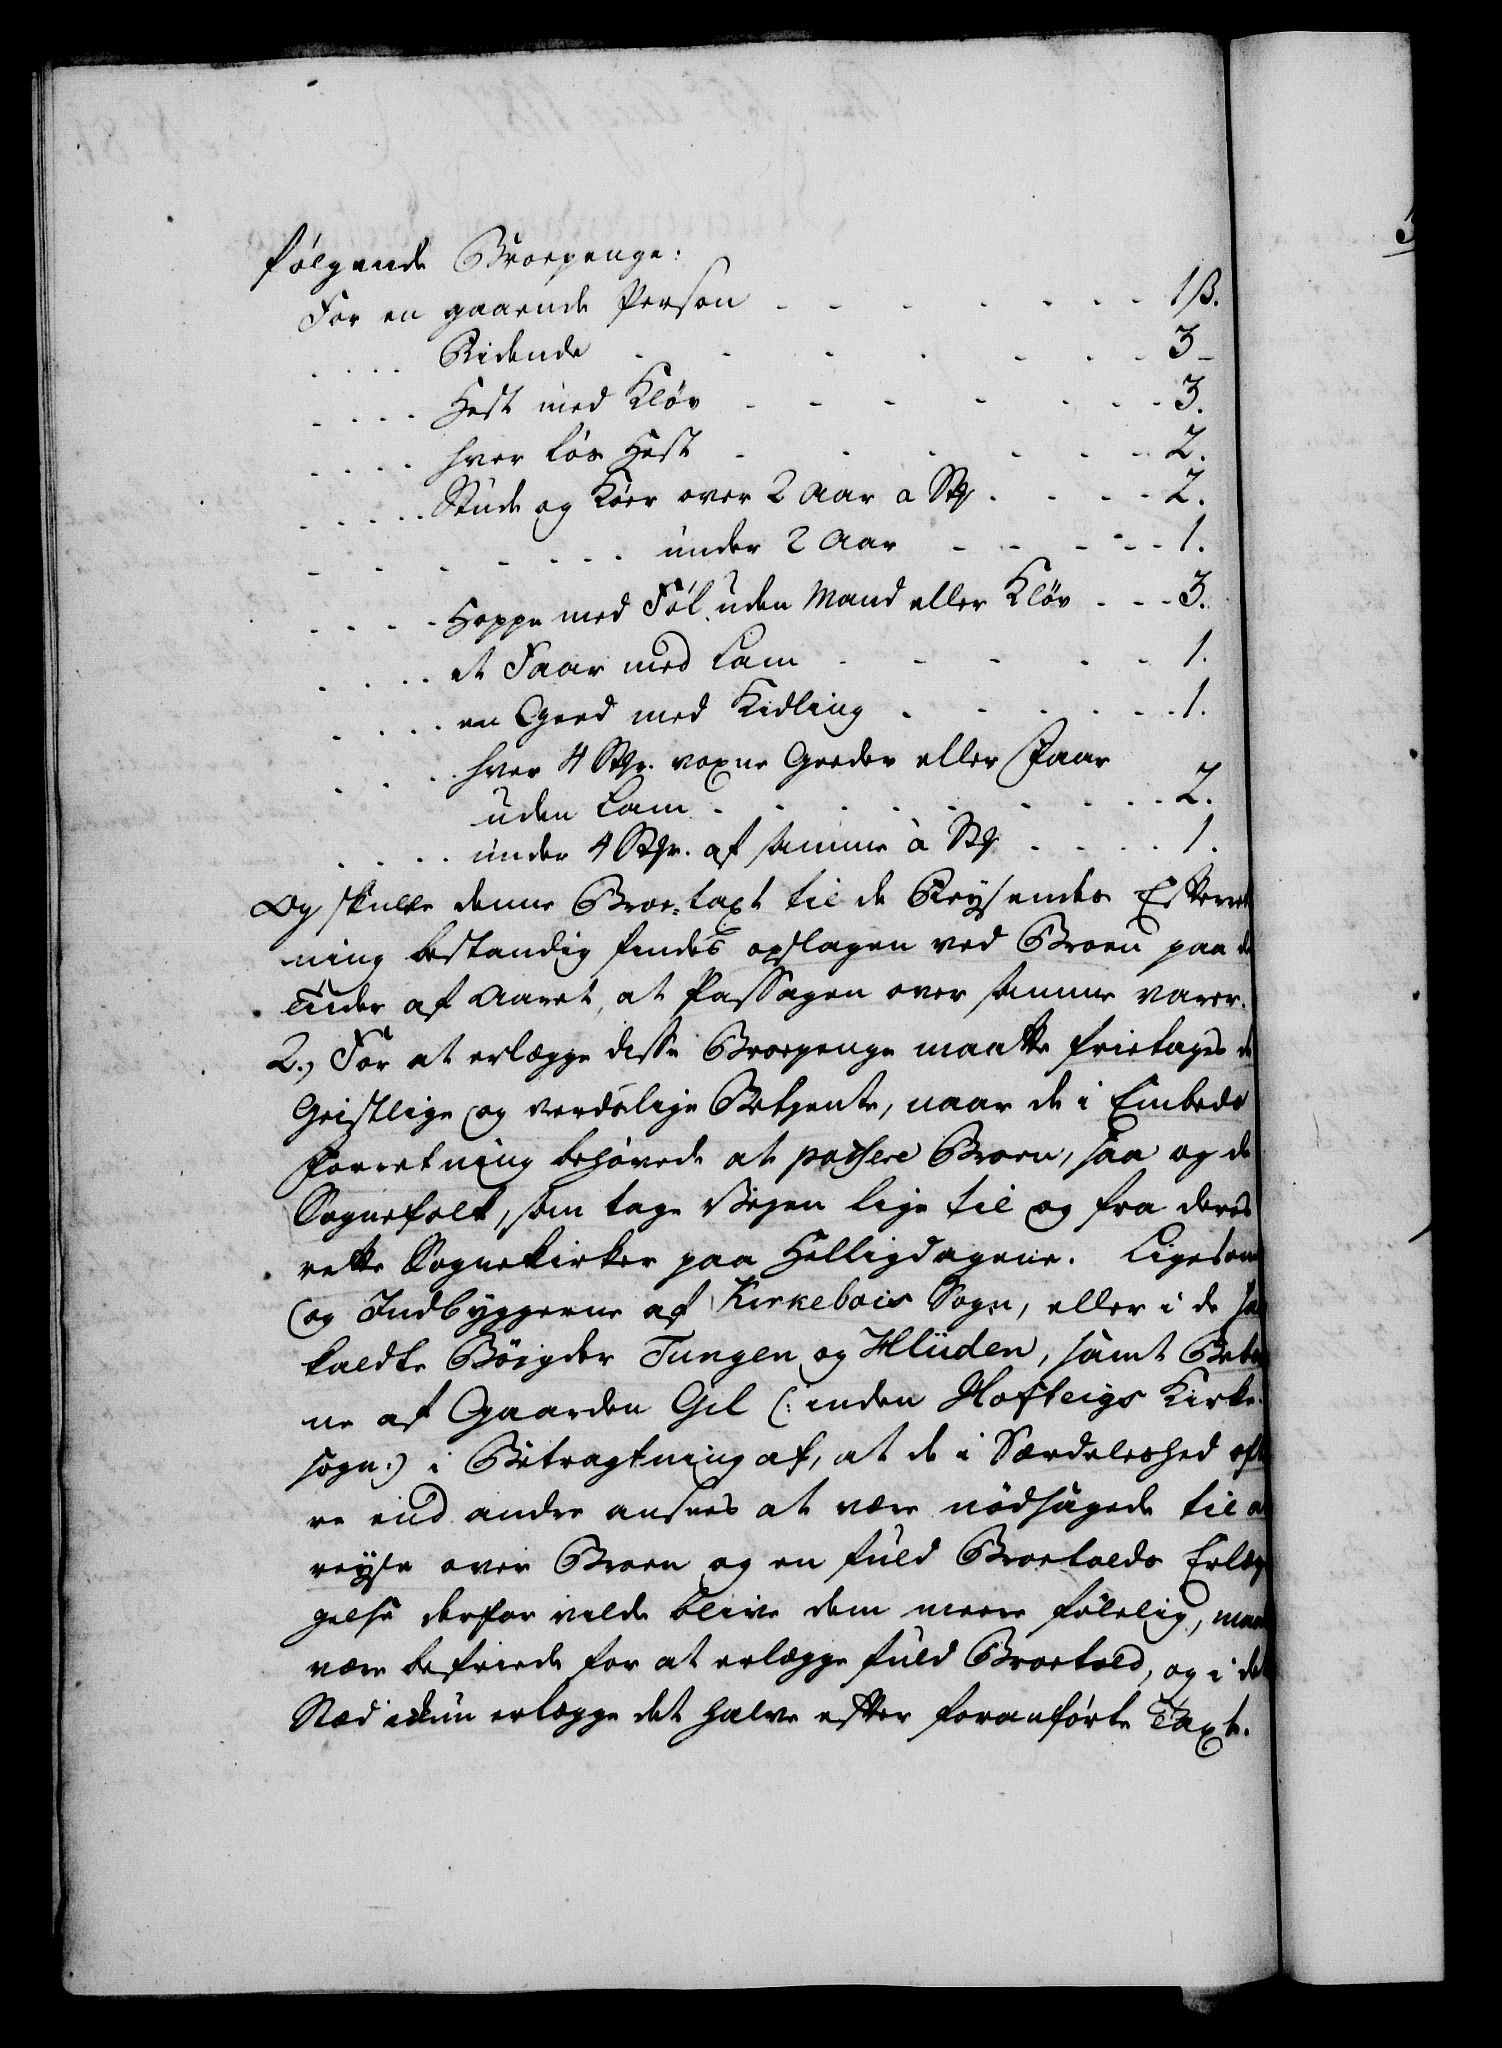 følgende Broepenge:
For en gaaende Person - - - - - - - 1 ß.
. . . . Ridende - - - - - - - 3 -
. . . . Hest med Kløv - - - - - - - 3.
. . . . hver løs Hest - - - - - - 2.
. . . . . Stude og Køer over 2 Aar a Stk . - - - 2.
. . . . . . . under 2 Aar - - - - - 1.
. . . . Hoppe med Føl uden Mand eller Kløv - - - 3.
. . . . et Faar med Lam - - - - - 1.
. . . . en Geed med Kidling - - - - - - 1.
. . . . hver 4 Stkr. voxne Geeder eller Faar
uden Lam - - - - - - - - 2.
. . . . under 4 Stkr. af samme à Stk - - - - 1.
Og skulle denne Broe-taxt til de Reysendes Efterret
ning bestandig findes opslagen ved Broen paa de
Tiider af Aaret, at Passagen over samme varer.
2.) For at erlægge disse Broepenge maatte frietages de
Geistlige og verdslige Betjente, naar de i Embeds
Forretning behøvede at passere Broen, saa og de
Sognefolk, som tage Vejen lige til og fra deres
rette Sognekirker paa Helligdagene. Ligesom
og Indbyggerne af Kirkebois Sogn, eller i de saa
kaldte Bøigder Tungen og Hliiden, samt Beboer
ne af Gaarden Gil (: inden Hofteigs Kirke-
sogn:) i Betragtning af, at de i Særdeleshed ofte
re end andre ansees at være nødsagede til at
reyse over Broen og en fuld Broetolds Erlæg
gelse derfor vilde blive dem meere følelig, maatte
være befriede for at erlægge fuld Broetold, og i det
Stæd ickun erlægge det halve efter foranførte Taxt.